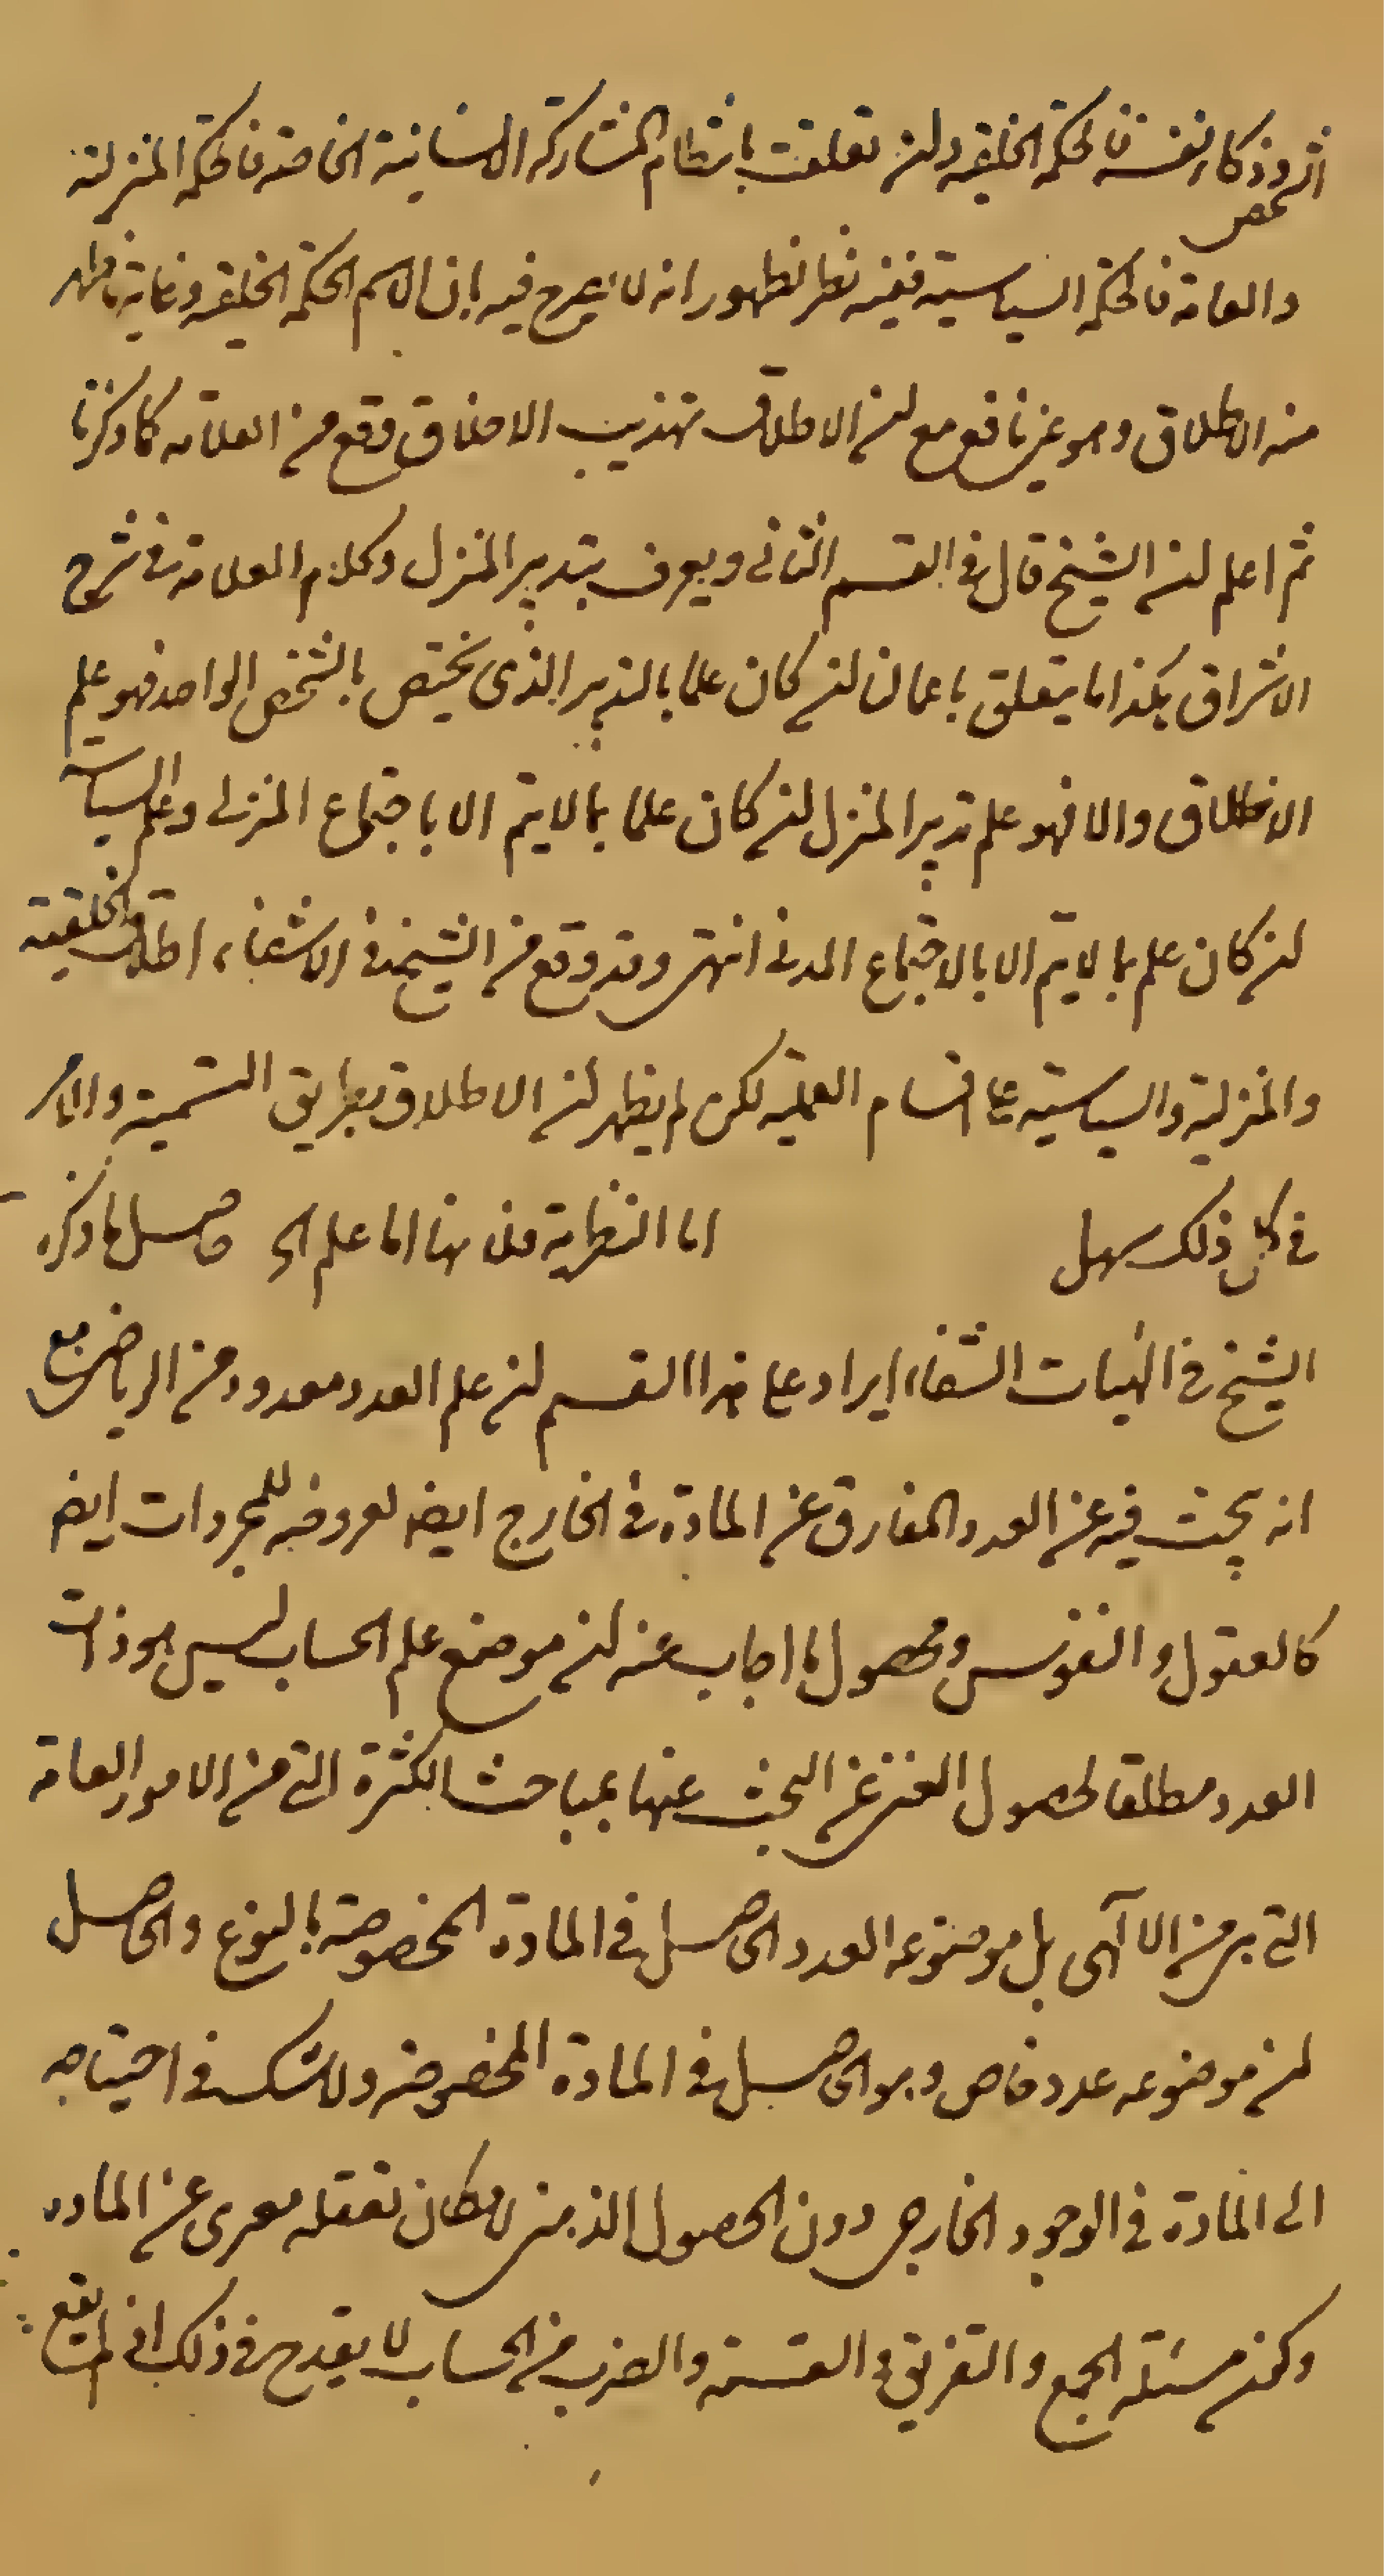 الشخص وذكاء نفسه فالحكمة الخلقية وان تعلقت بانتظام المشاركة الانسانية الخاصة فالحكمة المنزلية
والعامة فالحكمة السياسية ففيه نظر لظهور انه لا يصرح فيه بان اسم الحكمة الخلقية وغاية ما يظهر
منه الاطلاق وهو غير نافع مع ان الاطلاق تهذيب الاخلاق وقع من العلامة كما ذكرنا
ثم اعلم ان الشيخ قال في القسم الثاني ويعرف بتدبير المنزل وكلام العلامة في شرح
الاشراق هكذا ما يتعلق باعمالنا ان كان علما بالتدبير الذي يختص بالشخص الواحد فهو علم
الاخلاق والا فهو علم تدبير المنزل ان كان علما بما لا يتم الا باجتماع المنزلي وعلم السياسة
ان كان علم بما لا يتم الا بالاجتماع المدني انتهى وقد وقع من الشيخ في الشفاء اطلاق الخلقية
والمنزلية والسياسية على اقسام العملية لكن لم يظهر ان الاطلاق بطريق التسمية والامر
في كل ذلك سهل اما النظرية فلانها اما علم الخ حاصل ما ذكره
الشيخ في الهيات الشفاء ايراد على هذا القسم ان علم العدد معدود من الرياضي مع
انه يبحث فيه عن العدد المفارق عن المادة في الخارج ايضا لعروضه للمجردات ايضا
كالعقول والنفوس ومحصول ما اجاب عنه ان موضع علم الحساب ليس هو ذات
العدد مطلقا لحصول الغنى عن البحث عنها بمباحث الكثرة التي من الامور العامة
التي هي من الالهي بل موضوعه العدد الحاصل في المادة المخصوصة بالنوع والحاصل
ان موضوعه عدد خاص وهو الحاصل في المادة المخصوصة ولا شك في احتياجه
الى المادة في الوجود الخارجي دون الحصول الذهني لامكان تعقله معرى عن المادة
وكون مسئلة الجمع والتفريق والقسمة والضرب من الحساب لا يقدح في ذلك اذ لم يقع